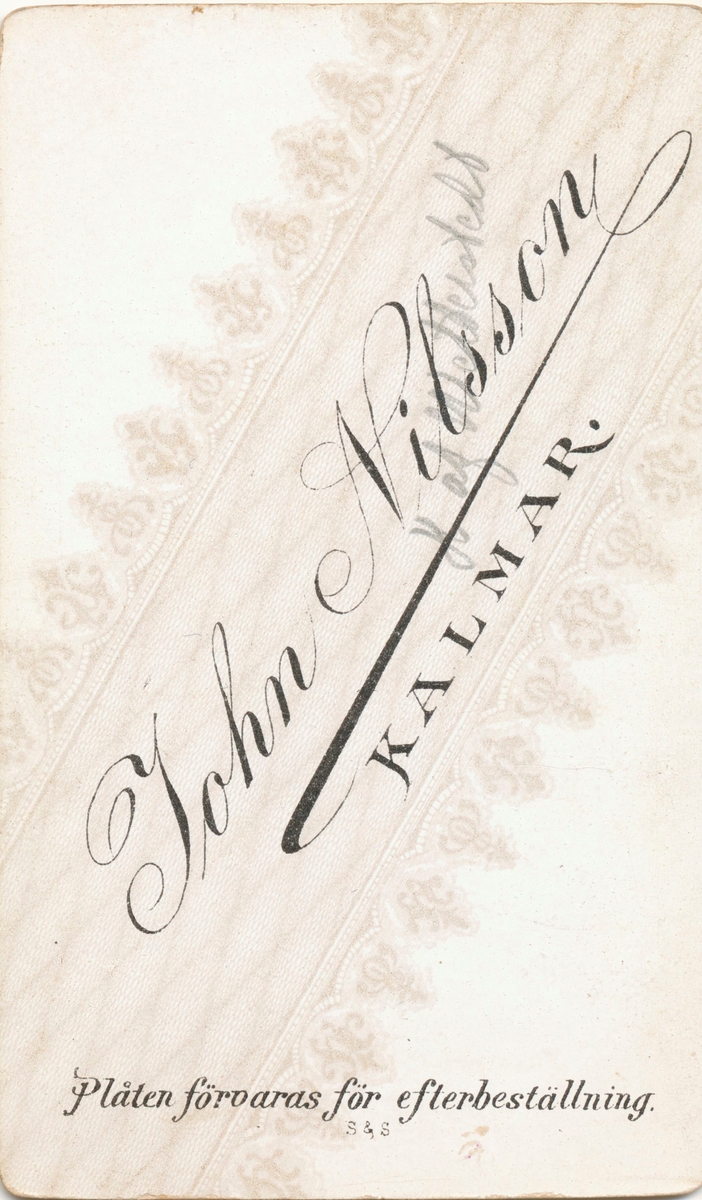 John Nilsson
KALMAR.
Plåten förvaras för efterbeställning.
S & S